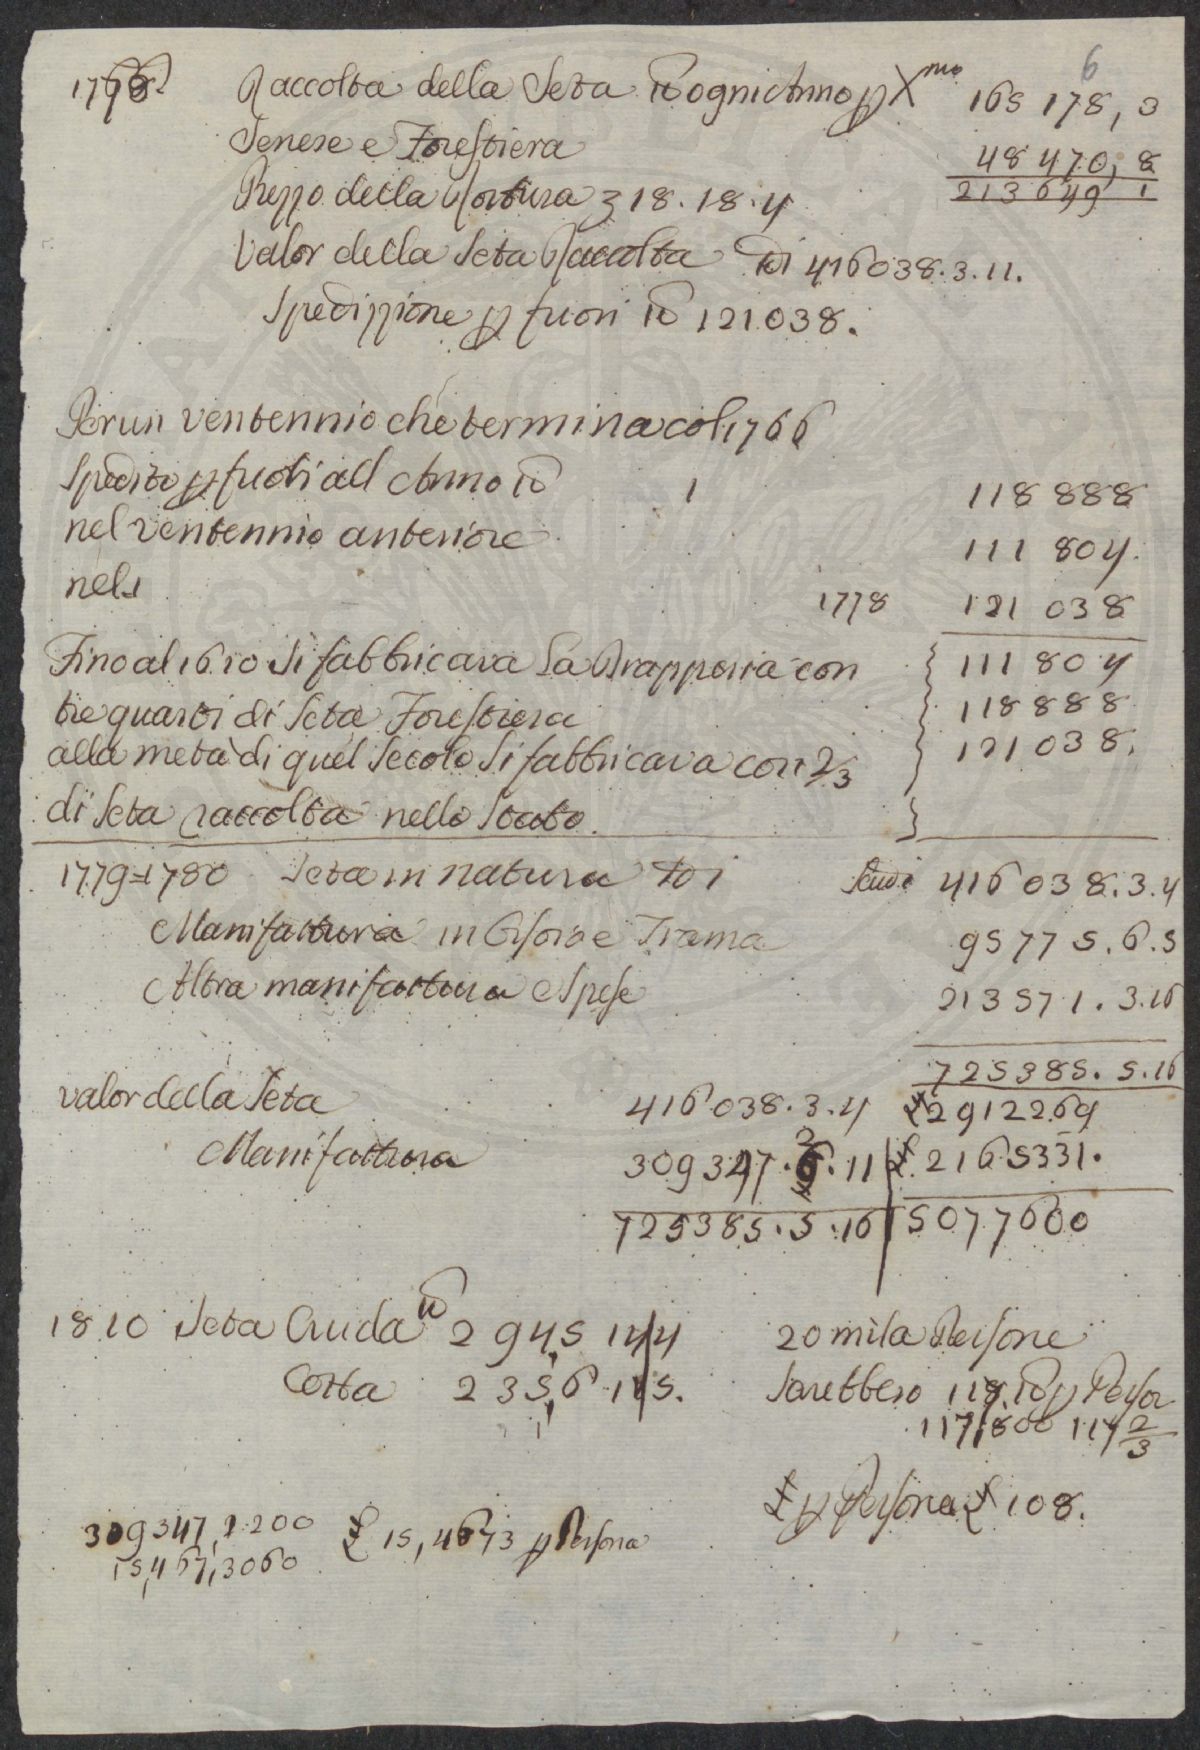 6
1778 Raccolta della Seta lb ogni Anno p Xmo 165 178, 3
Senese e Forestiera 48 470, 8
213 649 1
Prezzo della 318.18.4
Valor della Seta Raccolta di 416038.3.11.
Spedizzione p fuori lb 121038.
Per un ventennio che termina col 1766
Spedito p fuori all Anno lb 1 118 888
nel ventennio anteriore 111 804.
nel 1778 121 038
Fino al 1610 si fabbricava la Drapperia con 111 804
tre quarti di Seta Forestiera 118 888
alla metà di quel Secolo Si fabbricava con 2/3 121 038.
di Seta raccolta nello Stato.
1779=1780 Seta in natura Scudi 416 038.3.4
Manifattura in Orsoio e Trama 95775.6.5
Altra manifattura e Spese 213571.3.16
725385.5.16
valor della Seta 416 038.3.4 £ 2912269
Manifattura 309347.2.11 £ 2165331.
725385.5.16 5077600
1810 Seta Cruda lb 2945 144 20 mila Persone
Cotta 2356 115. Sarebbero 118. lb p Person
117,800 117 2/3
£ p Persona £ 108.
309347,2200 £ 15,4673 p Persona
15,467,3060